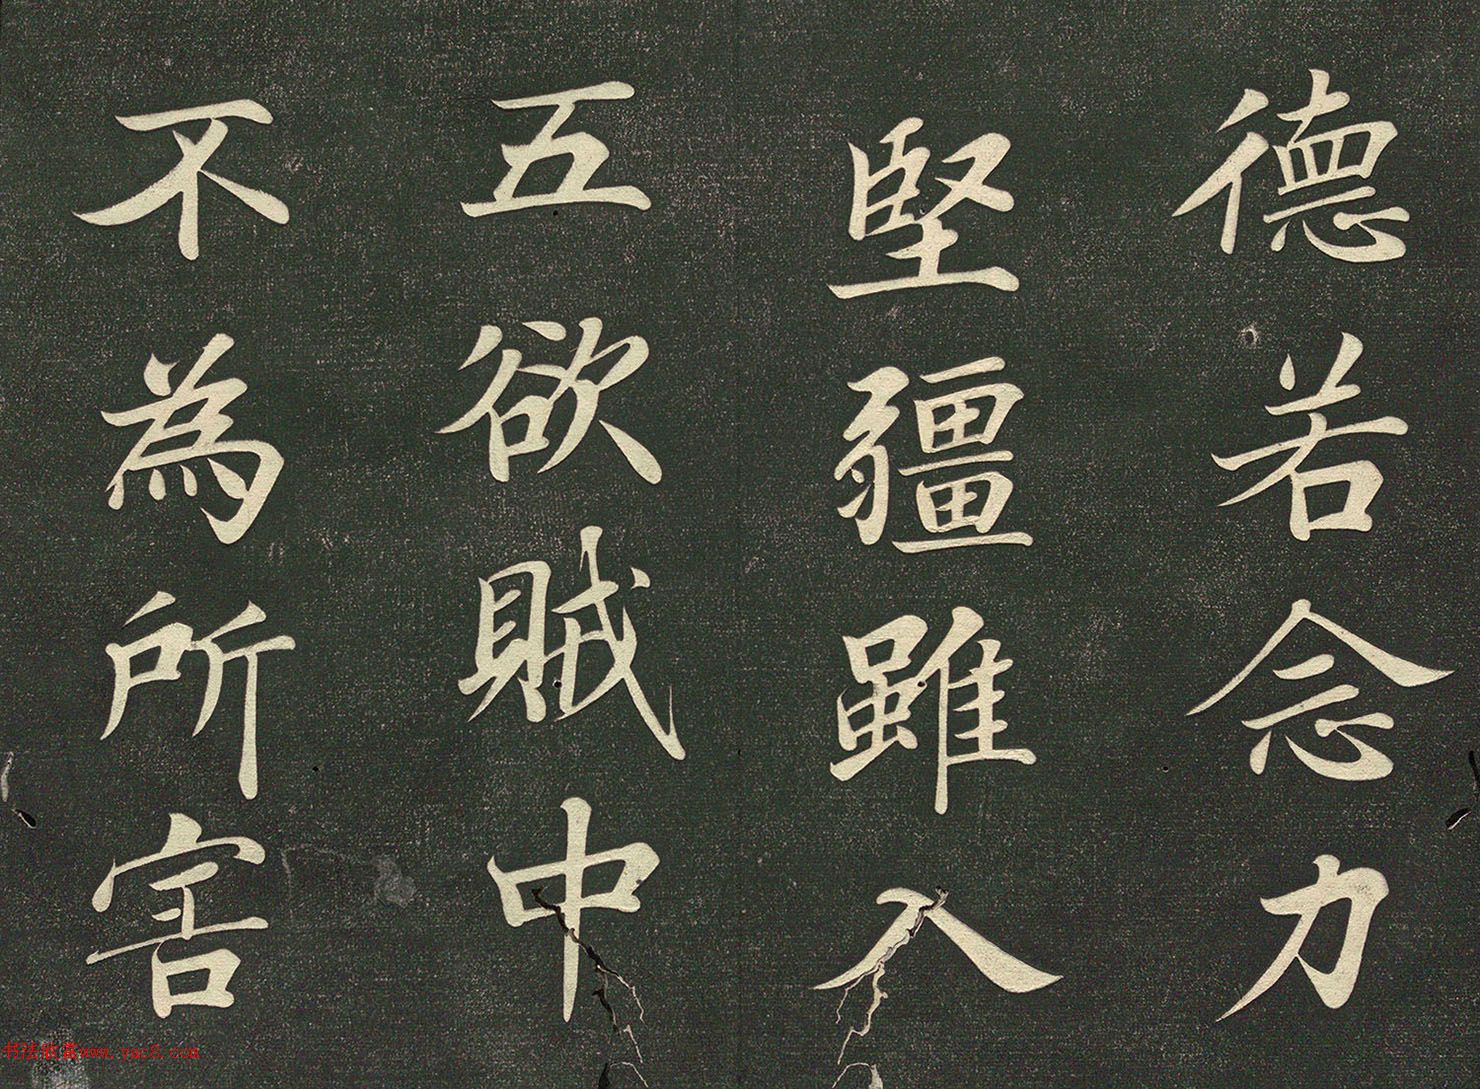 德若念力
堅疆雖入
五欲賊中
不為所害
书法欣赏www.yac8.com